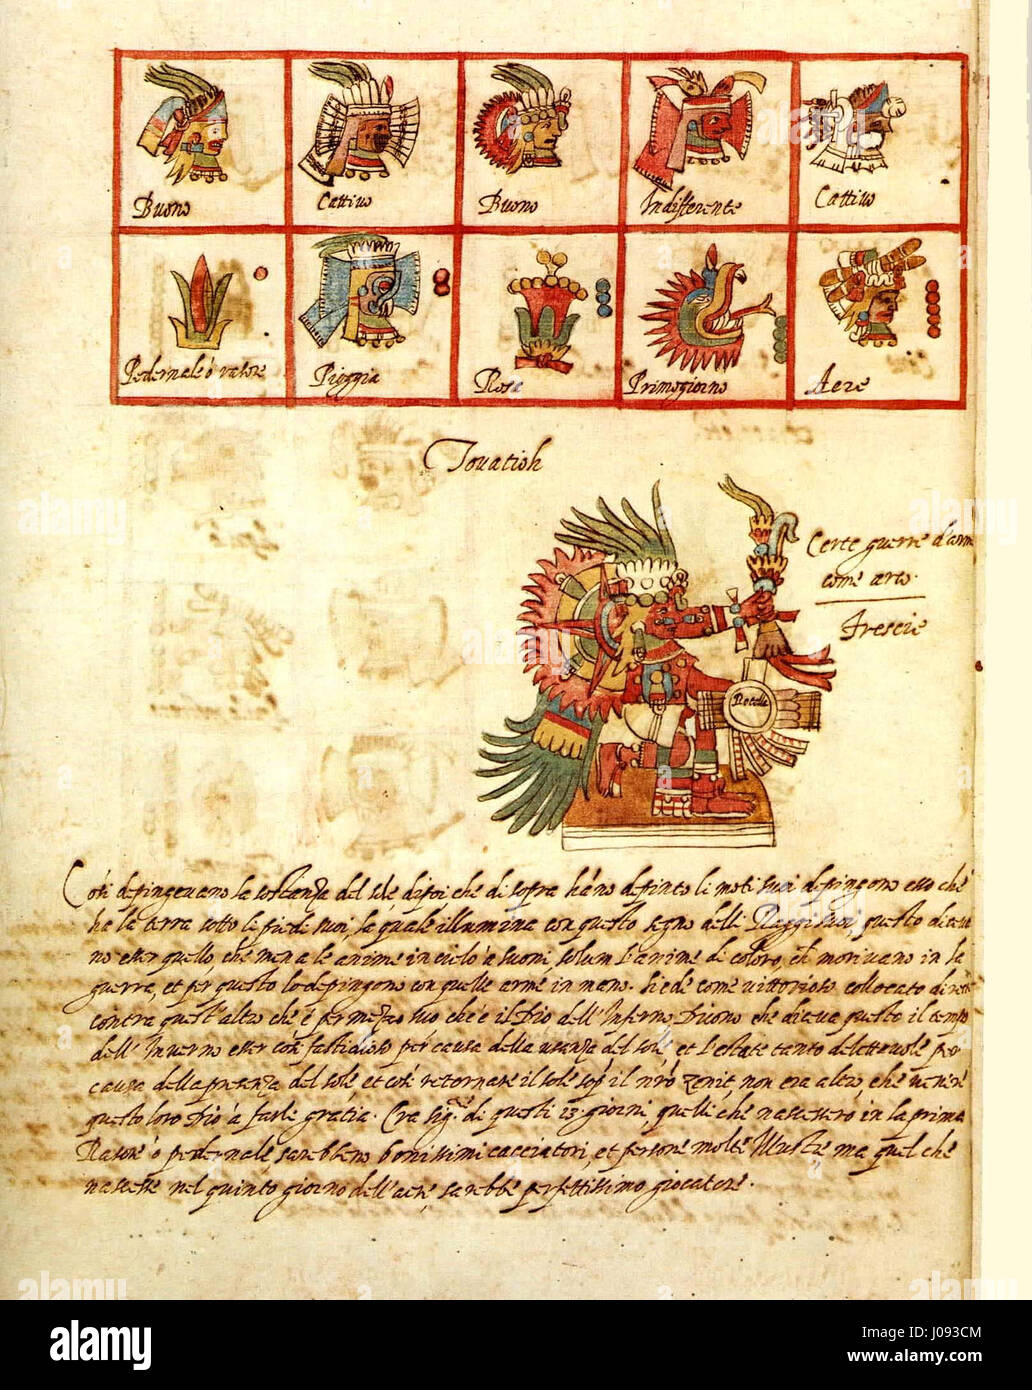 Buono Cattivo Buono Indifferente Cattivo
Pedernale ó rasore Pioggia Rosa Primogiorno Aere
Tonatioh
Certe guerre d'arme
come arco.
Frescie
Rotella
Cosi depingevano la sostanza del sole dipoi che di sopra hāno depinto li moti suoi depingono esso che
ha la terra sotto li piedi suoi, la quale illumina con questo segno delli Raggi suoi, questo diceva
no esser quello, che mena le anime in cielo à suoni, solum l'anime di coloro, ch morivano in la
guerra, et per questo lo depingono con quelle arme in mano. Siede come vittorioso collocato di
contra quest'altro che è per mezzo suo che è il Dio dell'Inferno Dicono che diceva questo il tempo
dell'Inverno esser cosi fastidioso per causa della del sole, et l'estate tanto delettevole per
causa della presenza del sole, et cosi retornare il sole sop il nrō zenit, non era altro, che venire
questo loro Dio à farle gratia. Era di questi 13. giorni, quelli che nascessero in la prima
Rasore ò pedernale sarebbero bonissimi cacciatori, et persone molte Illustre ma quel che
nascesse nel quinto giorno dell'aere, sarebbe perfettissimo giocatore.
alamy
Image ID: J093CM
www.alamy.com